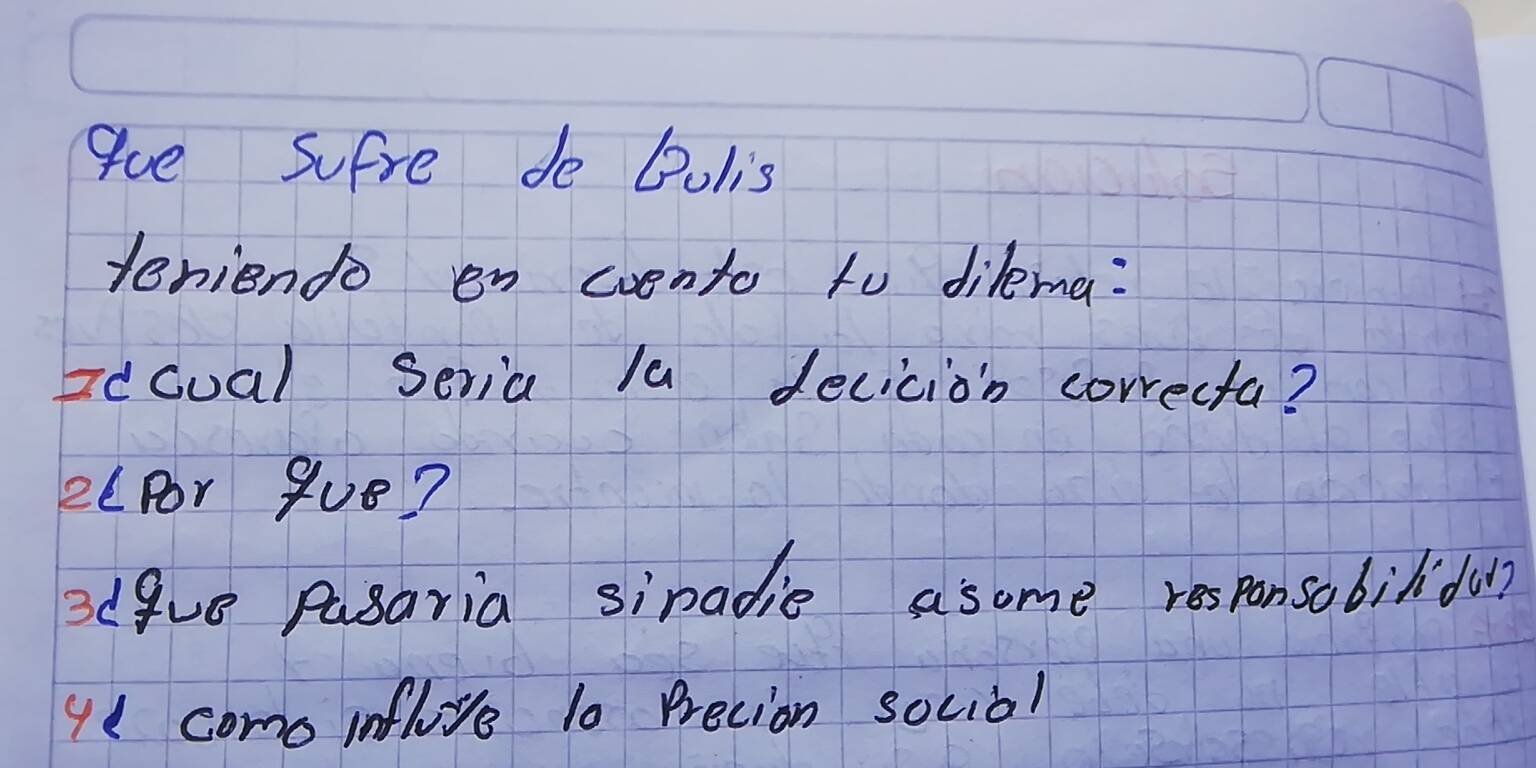 que sufre de Bulis
teniendo en cuenta tu dilema:
1¿cual seria la decición correcta?
2¿Por que?
3¿que pasaria sinadie asume responsabilidad?
4¿ como influye la Precion social